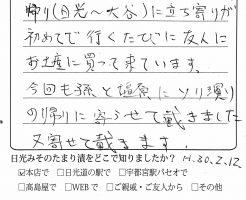 帰り(日光〜大谷)に立ち寄りが
初めてで行くたびに友人に
お土産に買って来ています。
今回も孫と塩原にソリ滑り
の帰りに寄らせて戴きました
又寄せて戴きます。
日光みそのたまり漬をどこで知りましたか? H.30.2.12
☑本店で □日光道の駅で □宇都宮駅パセオで
□高島屋で □WEBで □ご親戚・ご友人から □その他